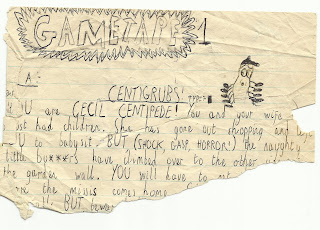 GAMETAPE 1
A:
CENTIGRUBS! type:-
U are CECIL CENTIPEDE! You and your wife
st had children. She has gone out shopping and
U to babysit. BUT (SHOCK, GASP, HORROR!) the naughty
little b****rs have climbed over to the other
the garden wall. YOU will have to
the missis comes home
BUT